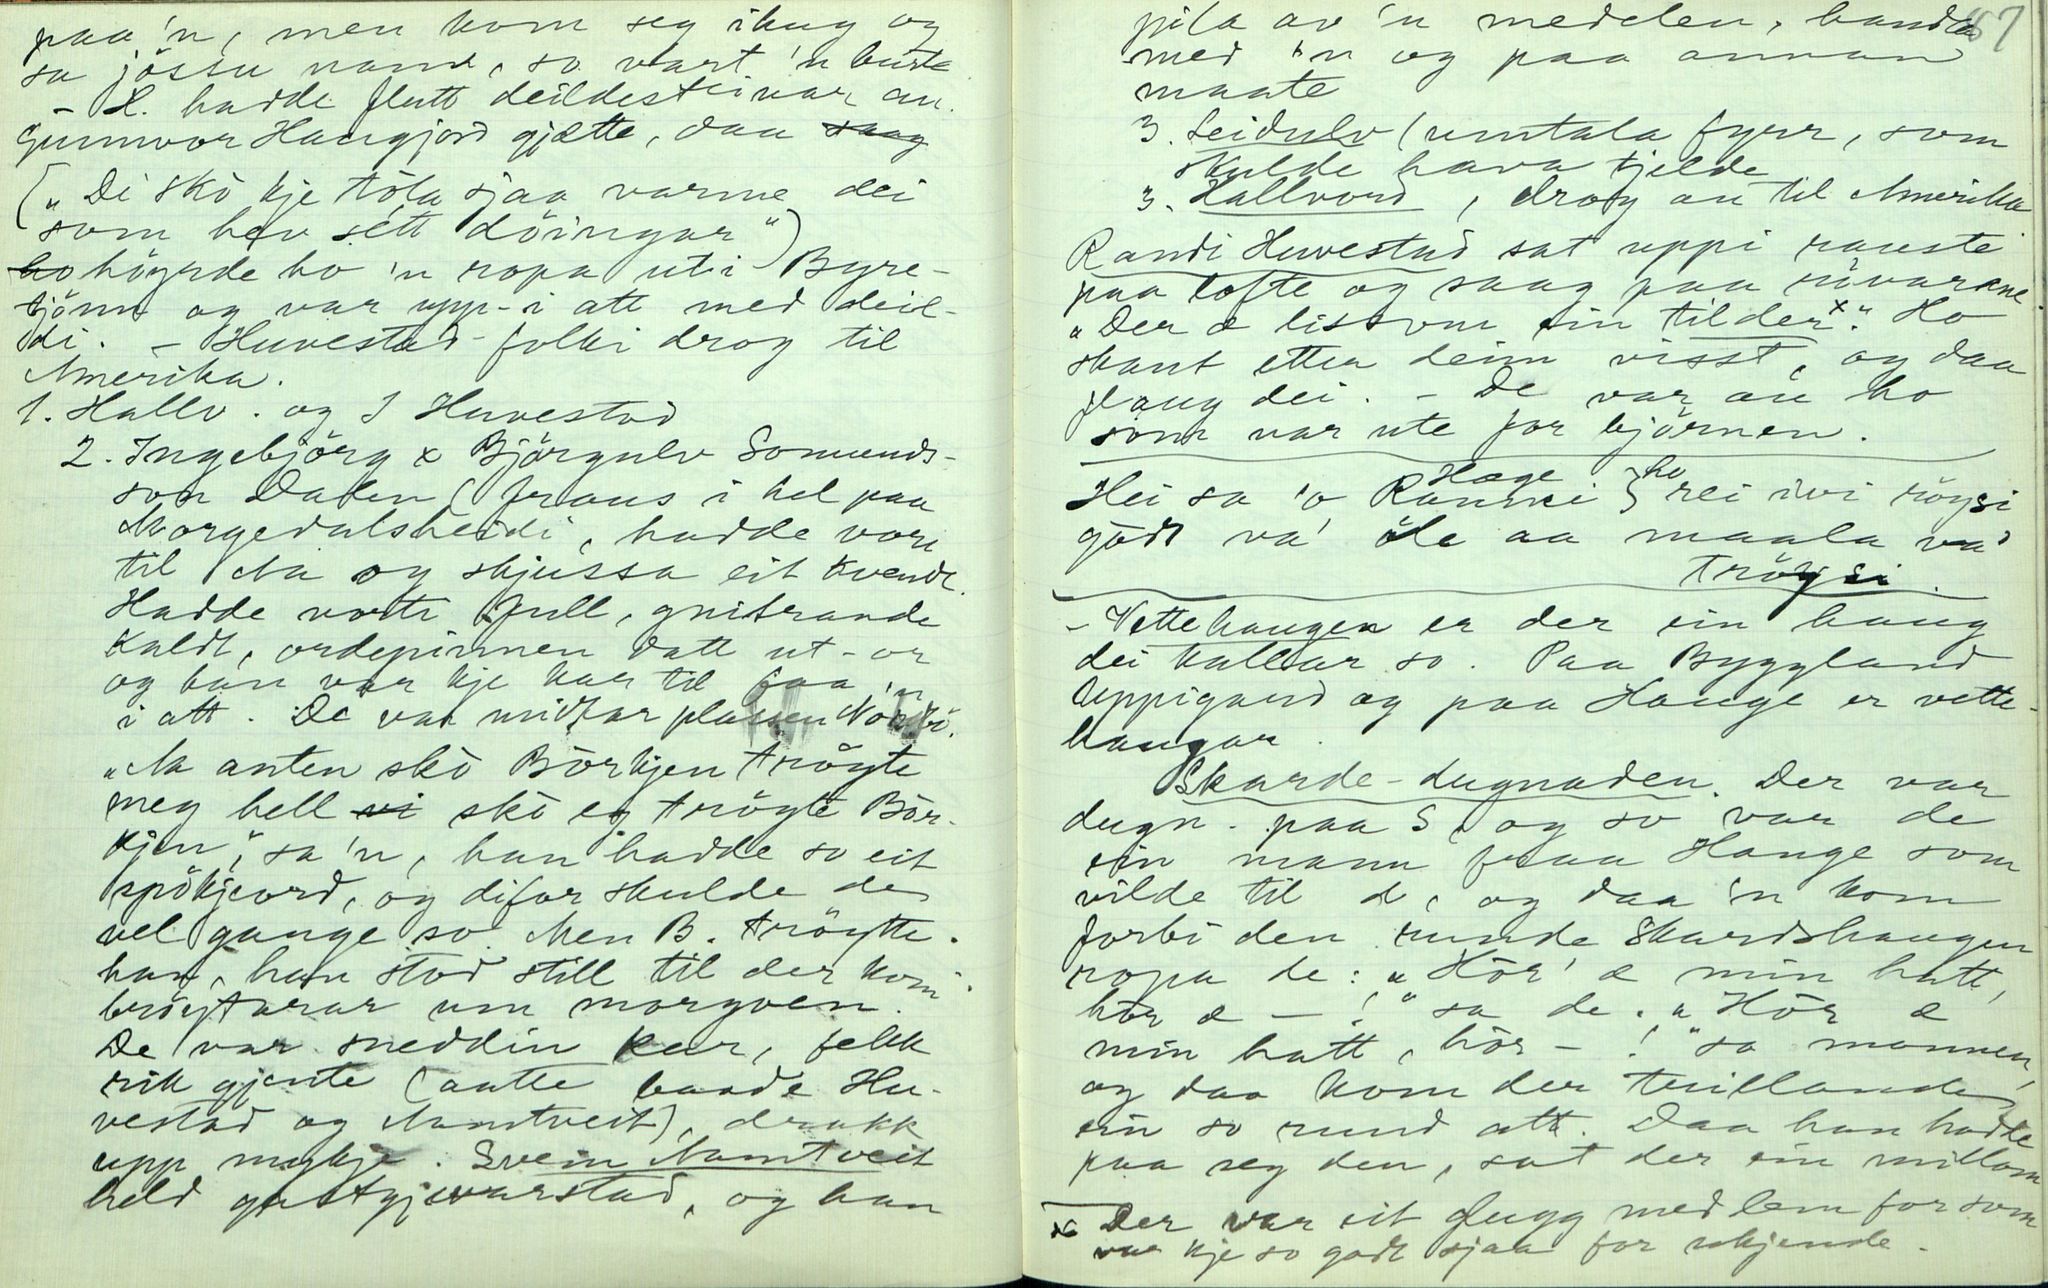 paa 'n, men kom seg ihug og
sa jössu namn, so vart 'n burte
- H. hadde flutt deildesteinar au.
Gunnvor Haugjord gjætte, daa saag
("Di sko kje töla sjaa varme dei
som hev sétt döingar")
ho höyrde ho 'n ropa uti Byre-
tjönn og var upp-i att med deil-
di. - Huvestad-folki drog til
Amerika.
1. Hallv. og I Huvestad
2. Ingebjörg x Björgulv Somunds-
son Dalen (fraus i hel paa
Morgedalsheidi, hadde vore
til Aa og skjussa eit kvende.
Hadde vorte full, gnitrande
kaldt, ordepinnen datt ut-or
og han var kje kar til faa 'n
i att. De var nidfar plassen Nordbö.
"Aa anten sko Börkjen tröyte
meg hell vi sko eg tröyte Bör-
kjen", sa 'n, han hadde so eit
spökjeord, og difor skulde de
vel gange so. Men B. tröytte
han, han stod still til der kom
bröytarar um morgoen.
De var sneddin kar, fekk
rik gjente (aatte baade Hu-
vestad og Aamtveit), drakk
upp mykje. Svein Aamtveit
held gjestgjevarstad, og han
pila av 'n medelen, handla
med 'n og paa annan
maate
3. Leidulv (umtala fyrr, som
skulde hava tjelde
3. Hallvord, drog au til Amerika
Randi Huvestad sat uppi rauste
paa lofte og saag paa snövarane
"Der æ lissom ein tilder x". Ho
skaut etter deim visst, og daa
flaug dei. - De var au ho
som var ute for björnen.
Hei sa 'o Ranvei Hæge } ho rei ivi röysi
godt va' öle aa maala va'
tröysi.
- Vettehaugen er der ein haug
dei kallar so. Paa Byggland
uppigard og paa Hauge er vette-
haugar.
Skarde-dugnaden. Der var
dugn. paa S. og so var de
ein mann fraa Hauge som
vilde til d, og daa 'n kom
forbi den runde Skardshaugen
ropa de: "Hör' æ min hatt,
hör æ - !" sa de. "Hör æ
min hatt, hör - !" sa mannen,
og daa kom der trillande
ein so rund att. Daa han hadde
paa seg den, sat der ein millom
x Der var eit glugg med lem for som
var kje so godt sjaa for ukjende.
87